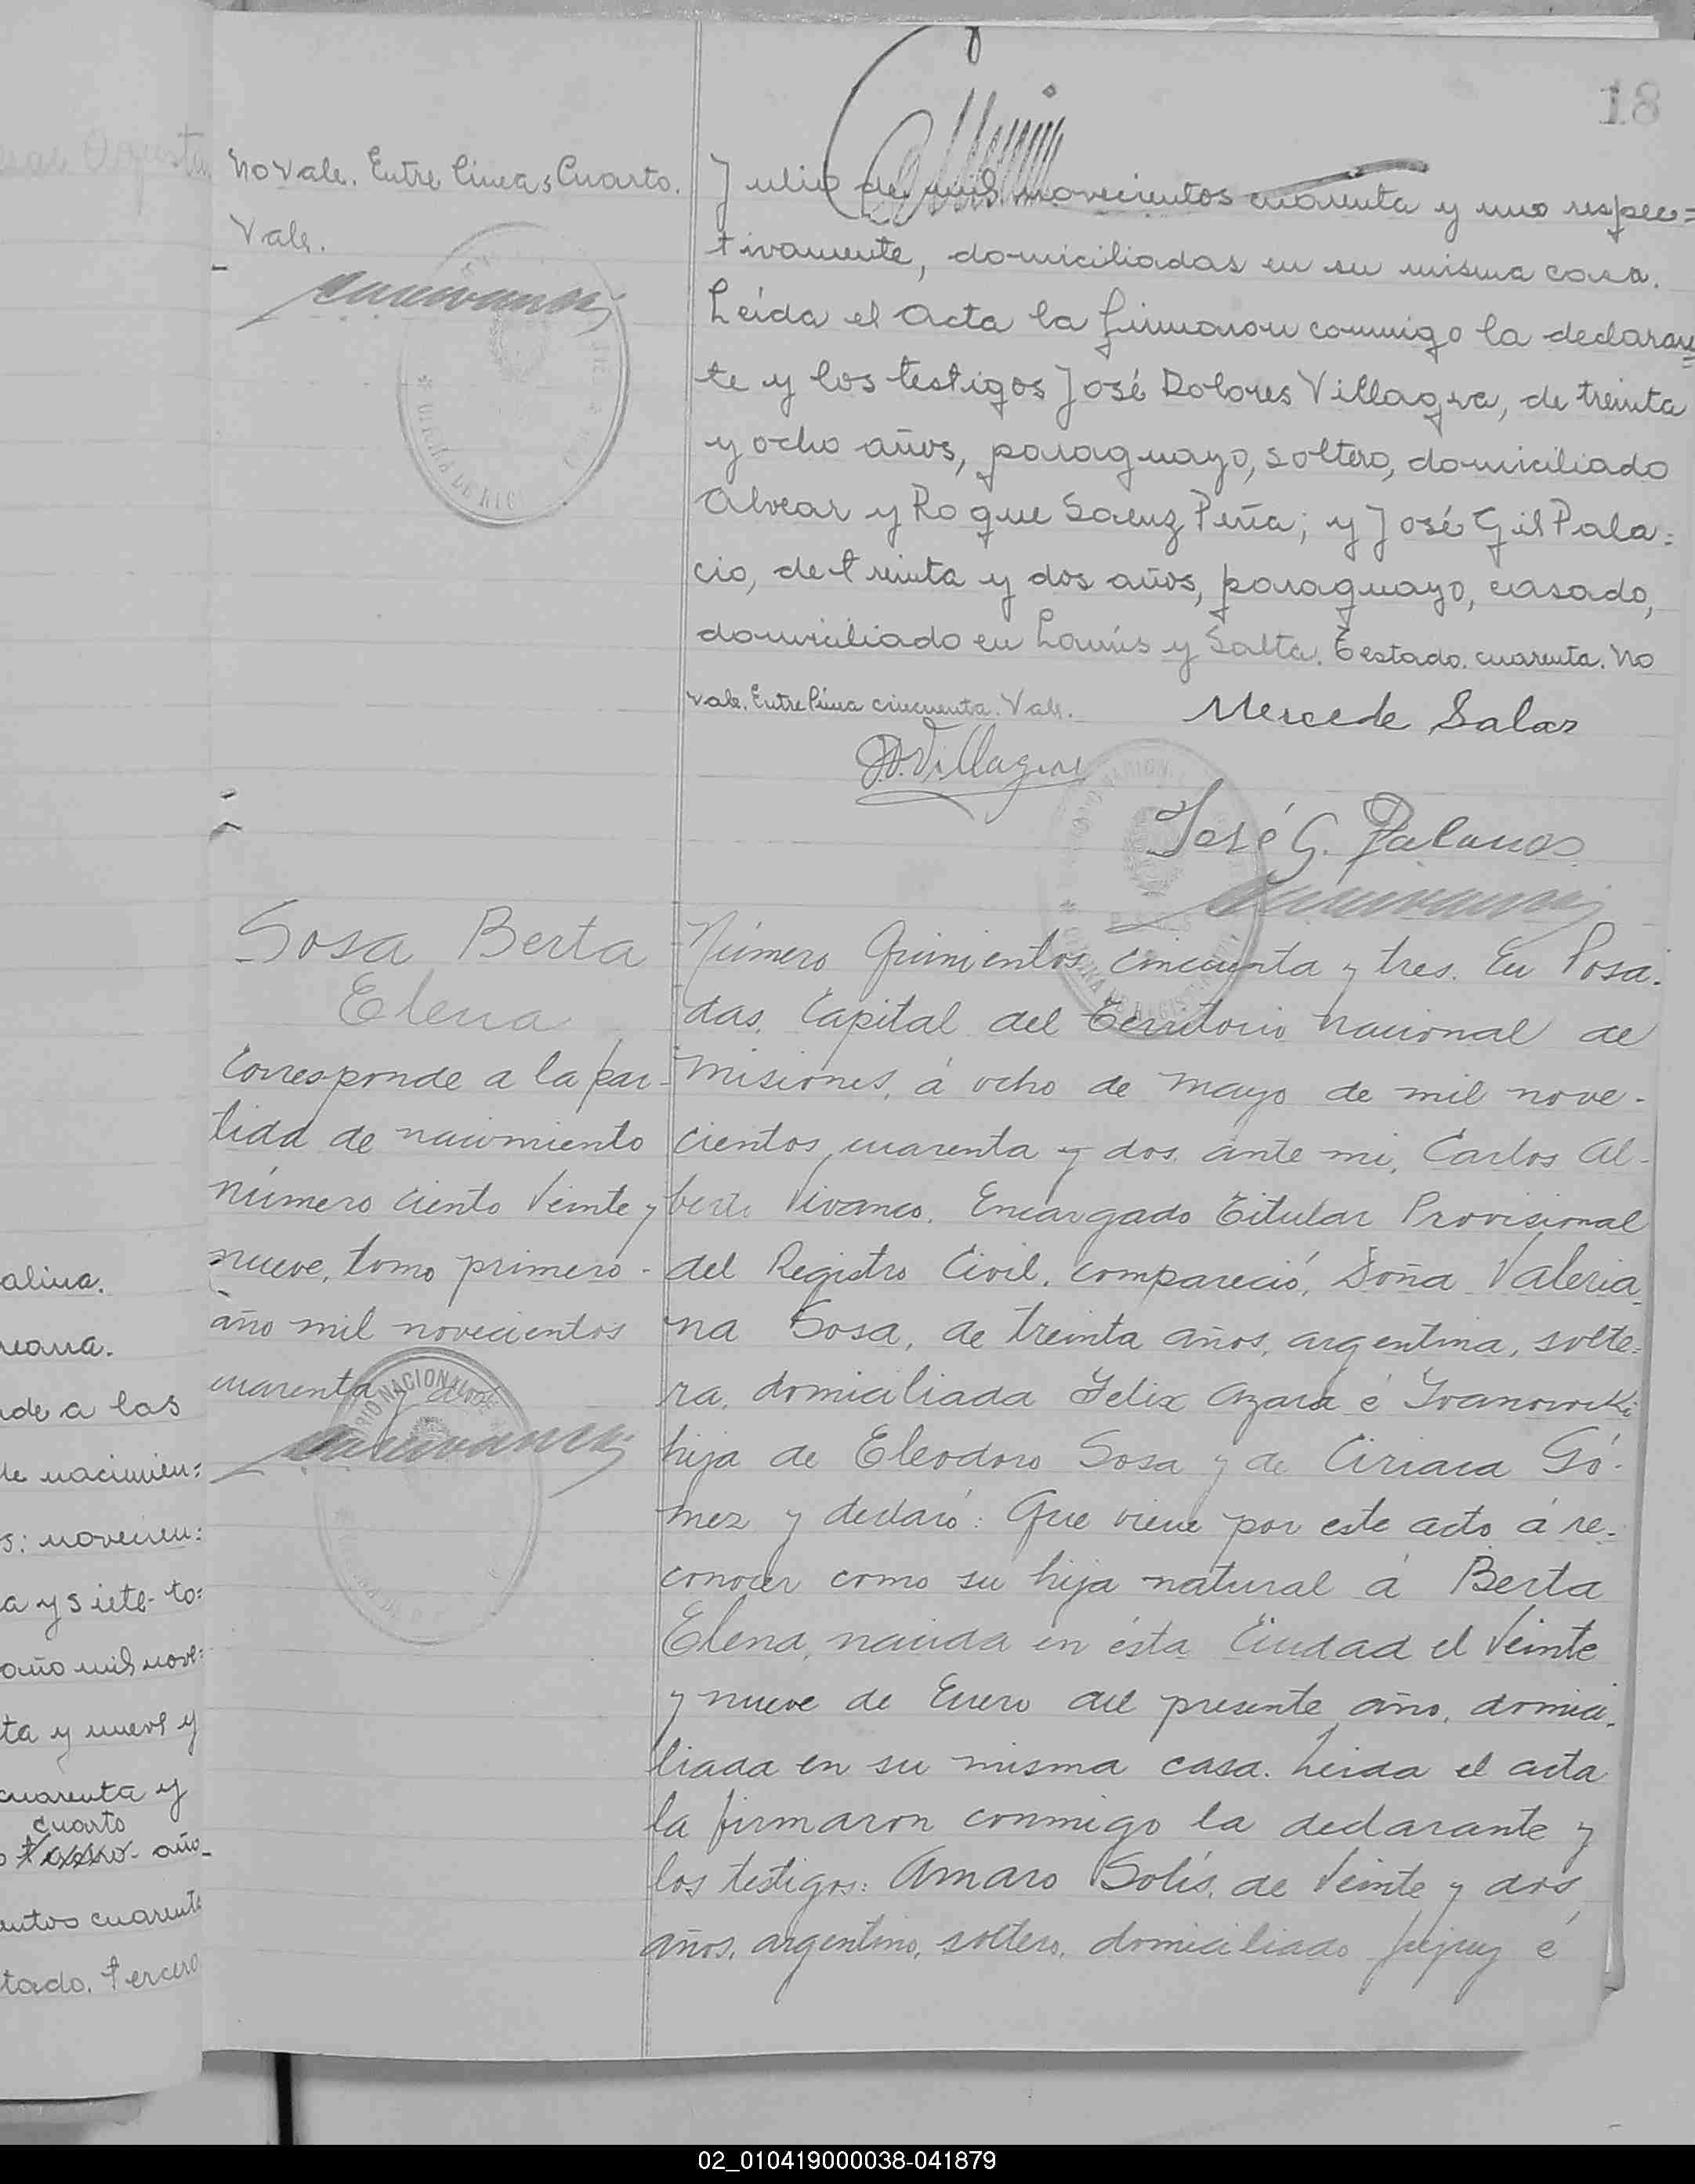 18
No vale. Entre lineas Cuarto.
Vale.
Julio de mil novecientos cuarenta y uno respec=
tivamente, domiciliadas en su misma casa.
Leida el Acta la firmaron conmigo la declaran=
te y los testigos José Dolores Villagra, de treinta
y ocho años, paraguayo, soltero, domiciliado
Alvear y Roque Saenz Peña; y José Gil Pala=
cio, de treinta y dos años, paraguayo, casado,
domiciliado en Lanús y Salta. Testado. cuarenta. No
vale. Entre línea cincuenta. Vale.
Mercede Salas
J.D. Villagra
José G. Palacios
Sosa Berta
Elena
Corresponde a la par-
tida de nacimiento
número ciento veinte y
nueve, tomo primero -
año mil novecientos
cuarenta y dos
Número Quinientos cincuenta y tres. En Posa-
das, Capital del Territorio Nacional de
Misiones, á ocho de Mayo de mil nove-
cientos cuarenta y dos, ante mi, Carlos Al-
berto Vivanco, Encargado Titular Provisional
del Registro Civil, compareció, Doña Valeria-
na Sosa, de treinta años, argentina, solte=
ra, domiciliada Felix Azara é Ivanowski
hija de Eleodoro Sosa y de Ciriaca Gó-
mez y declaró: Que viene por este acto á re-
conocer como su hija natural á Berta
Elena, nacida en ésta Ciudad el veinte
y nueve de Enero del presente año, domici-
liada en su misma casa. Leida el acta
la firmaron conmigo la declarante y
los testigos: Amaro Solís, de veinte y dos
años, argentino, soltero, domiciliado Jujuy é
alina.
reana.
de a las
de nacimien:
s: novecien:
a y siete- to:
año mil nove:
ta y nueve y
cuarenta y
cuarto
año-
entos cuarenta
tado. tercero
02_010419000038-041879